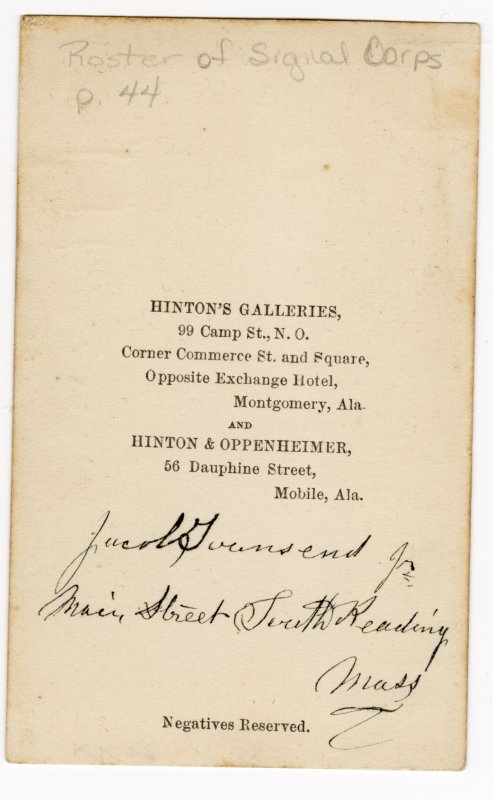 Roster of Signal Corps
p. 44
HINTON'S GALLERIES,
99 Camp St., N. O.
Corner Commerce St. and Square,
Opposite Exchange Hotel,
Montgomery, Ala.
AND
HINTON & OPPENHEIMER,
56 Dauphine Street,
Mobile, Ala.
Jacob Townsend Jr
Main Street South Reading
Mass
Negatives Reserved.